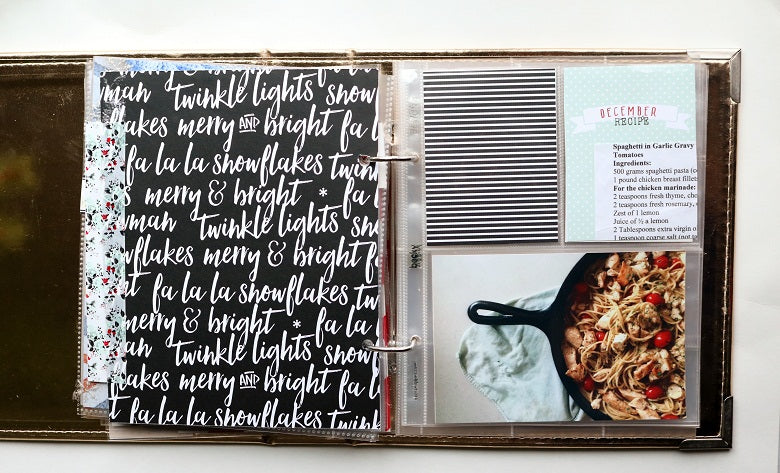 merry & bright
wman twinkle lights snow
flakes merry AND bright fa
fa la la snowflakes
s merry & bright * fa l
wman twinkle lights snow
wflakes merry & bright
fa la la snowflakes
merry & bright * fa la
man twinkle lights snow
lakes merry AND bright fa l
fa la la snowflakes twink
DECEMBER
RECIPE
Spaghetti in Garlic Gravy
Tomatoes
Ingredients:
500 grams spaghetti pasta (o
1 pound chicken breast fillets
For the chicken marinade:
2 teaspoons fresh thyme, cho
2 teaspoons fresh rosemary,
Zest of 1 lemon
Juice of ½ a lemon
2 Tablespoons extra virgin o
1 teaspoon coarse salt (not ta